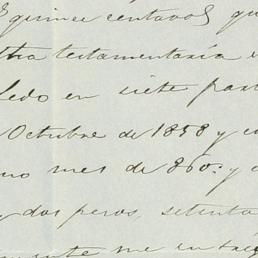 quince centavos qu
tra testamentaria
ledo en siete par
Octubre de 1858 y
mes de 860: y
y dos pesos, setenta
me